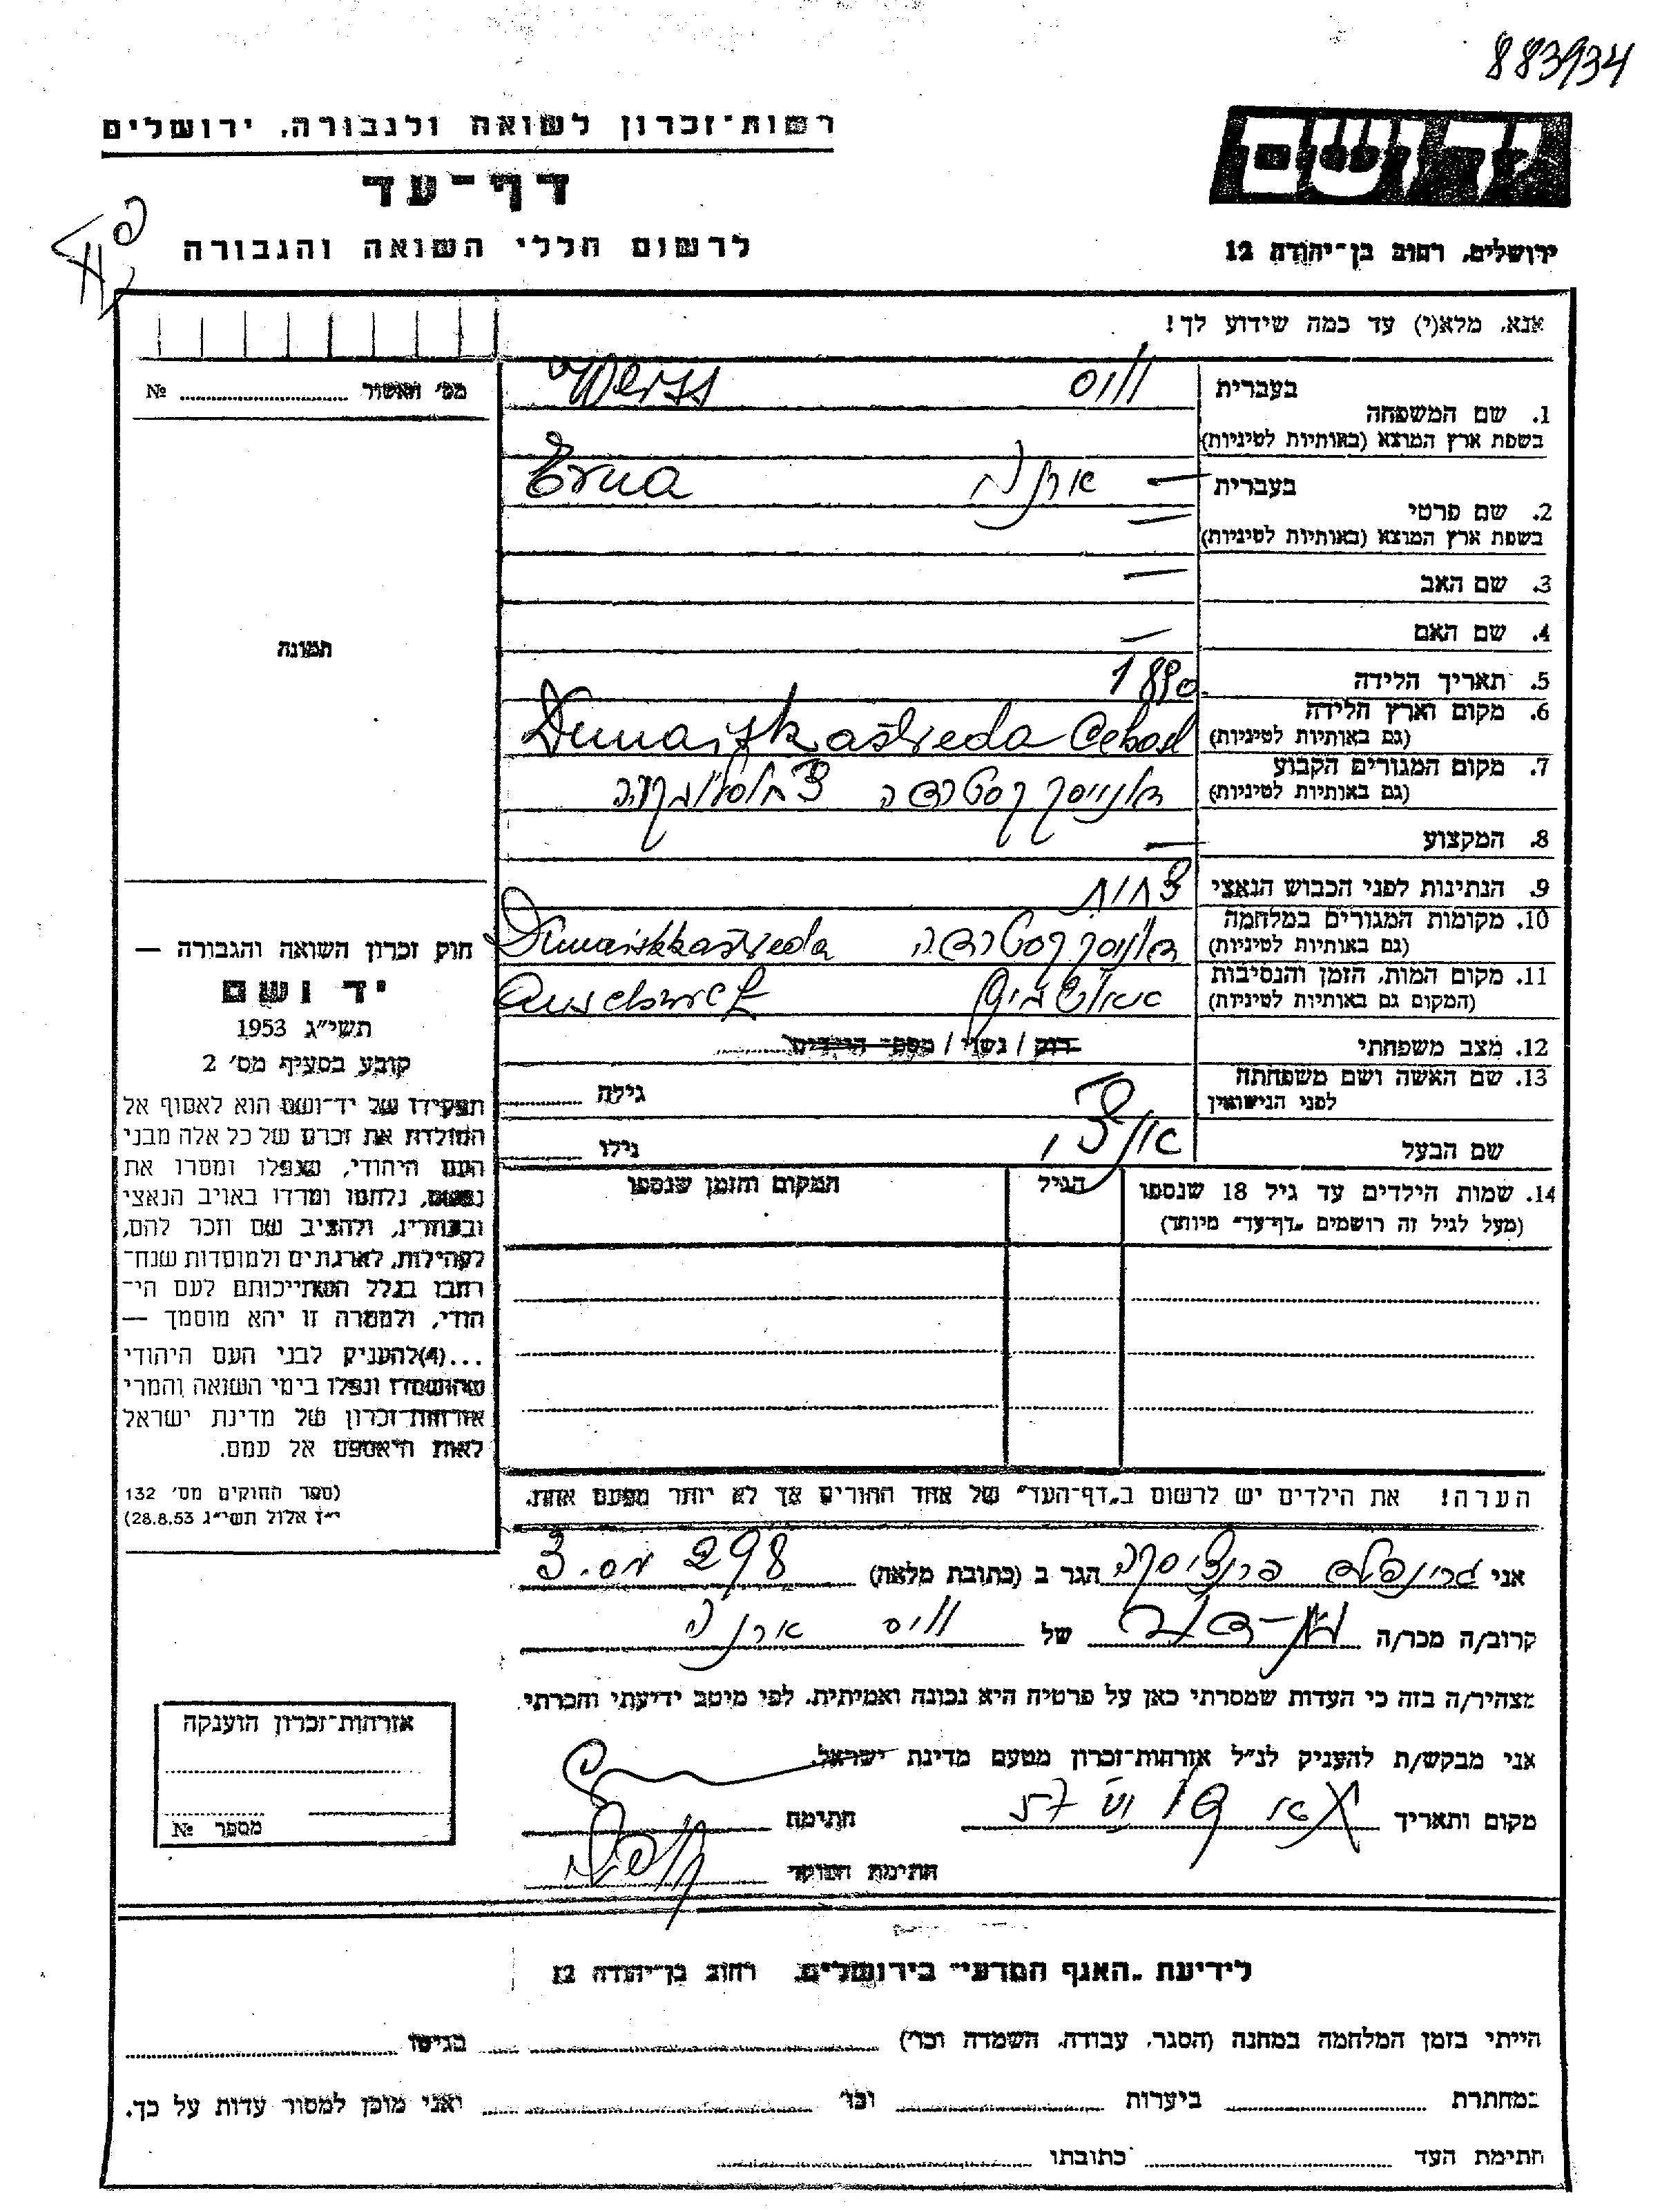 883934
רשות־זכרון לשואה ולגבורה, ירושלים
יד ושם
דף־עד
לרשום חללי השואה והגבורה
ירושלים, רחוב בן־יהודה 12
אנא, מלא(י) עד כמה שידוע לך!
מס׳ תאשור № 
בעברית
1. שם המשפחה
וויס Weiss
בשפת ארץ המוצא (באותיות לטיניות)
בעברית — ארנה Erna
2. שם פרטי
בשפת ארץ המוצא (באותיות לטיניות) —
3. שם האב —
4. שם האם —
תמונה
5. תאריך הלידה 1890
6. מקום וארץ הלידה
(גם באותיות לטיניות) Dunajskastreda
7. מקום המגורים הקבוע
(גם באותיות לטיניות) צ׳כוסלובקיה
8. המקצוע —
9. הנתינות לפני הכבוש הנאצי צ׳כית
10. מקומות המגורים במלחמה
(גם באותיות לטיניות)
11. מקום המות, הזמן והנסיבות
(המקום גם באותיות לטיניות) אושוויץ
12. מצב משפחתי רוק / נשוי / מספר הילדים
13. שם האשה ושם משפחתה
לפני הנישואין גילה
שם הבעל גילו
14. שמות הילדים עד גיל 18 שנספו הגיל המקום והזמן שנספו
(מעל לגיל זה רושמים „דף־עד” מיוחד)
חוק זכרון השואה והגבורה —
יד ושם
תשי״ג 1953
קובע בסעיף מס׳ 2
תפקידו של יד־ושם הוא לאסוף אל
המולדת את זכרם של כל אלה מבני
העם היהודי, שנפלו ומסרו את
נפשם, נלחמו ומרדו באויב הנאצי
ובעוזריו, ולהציב שם וזכר להם,
לקהילות, לארגונים ולמוסדות שנח־
רבו בגלל השתייכותם לעם הי־
הודי, ולמטרה זו יהא מוסמך —
...(4) להעניק לבני העם היהודי
שהושמדו ונפלו בימי השואה והמרי
אזרחות־זכרון של מדינת ישראל
לאות היאספם אל עמם.
(ספר החוקים מס׳ 132
י״ז אלול תשי״ג 28.8.53)
הערה! את הילדים יש לרשום ב„דף־העד” של אחד ההורים אך לא יותר מפעם אחת.
אני גרינפלד הגר ב (כתובת מלאה) 298
קרוב/ה מכר/ה של וויס ארנה
מצהיר/ה בזה כי העדות שמסרתי כאן על פרטיה היא נכונה ואמיתית, לפי מיטב ידיעתי והכרתי.
אני מבקש/ת להעניק לנ״ל אזרחות־זכרון מטעם מדינת ישראל.
מקום ותאריך 57 חתימה
חתימת הפוקד
אזרחות־זכרון הוענקה
מספר №
לידיעת „האגף המדעי” בירושלים, רחוב בן־יהודה 12
הייתי בזמן המלחמה במחנה (הסגר, עבודה, השמדה וכו׳) בגיטו
במחתרת ביערות וכו׳ ואני מוכן למסור עדות על כך.
חתימת העד כתובתו